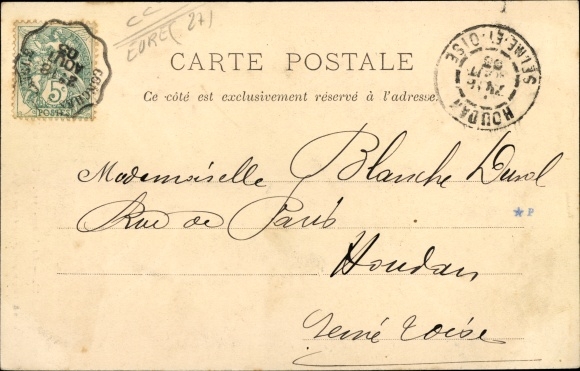 CC
EURE (27)
5c
POSTES
CARTE POSTALE
Ce côté est exclusivement réservé à l'adresse.
HOUDAN
SEINE-ET-OISE
Mademoiselle Blanche Duval
Rue de Paris
★ P
Houdan
Seine et Oise